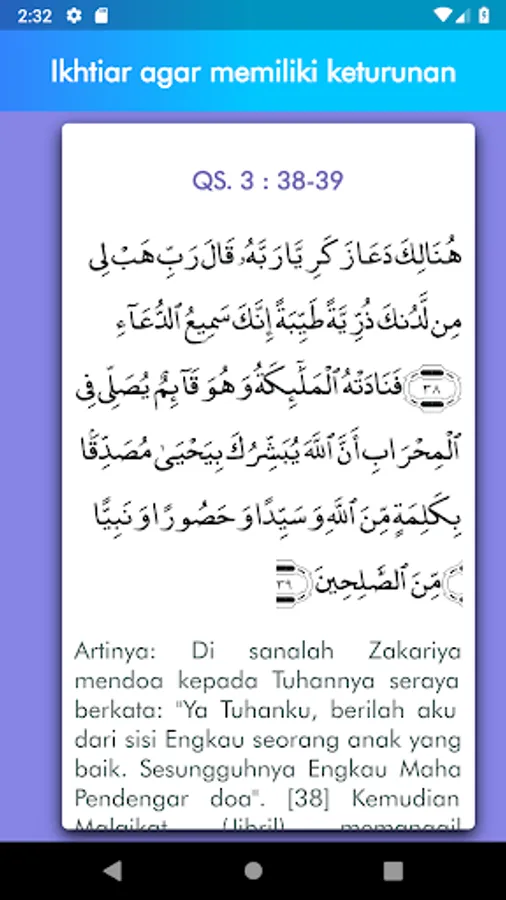 2:32
Ikhtiar agar memiliki keturunan
QS. 3 : 38-39
هُنَالِكَ دَعَا زَكَرِيَّا رَبَّهُۥ قَالَ رَبِّ هَبْ لِى
مِن لَّدُنكَ ذُرِّيَّةً طَيِّبَةً إِنَّكَ سَمِيعُ ٱلدُّعَآءِ
٣٨ فَنَادَتْهُ ٱلْمَلَٰٓئِكَةُ وَهُوَ قَآئِمٌ يُصَلِّى فِى
ٱلْمِحْرَابِ أَنَّ ٱللَّهَ يُبَشِّرُكَ بِيَحْيَىٰ مُصَدِّقًۢا
بِكَلِمَةٍ مِّنَ ٱللَّهِ وَسَيِّدًا وَحَصُورًا وَنَبِيًّا
مِّنَ ٱلصَّٰلِحِينَ ٣٩
Artinya: Di sanalah Zakariya
mendoa kepada Tuhannya seraya
berkata: "Ya Tuhanku, berilah aku
dari sisi Engkau seorang anak yang
baik. Sesungguhnya Engkau Maha
Pendengar doa". [38] Kemudian
Malaikat (Jibril) memanggil